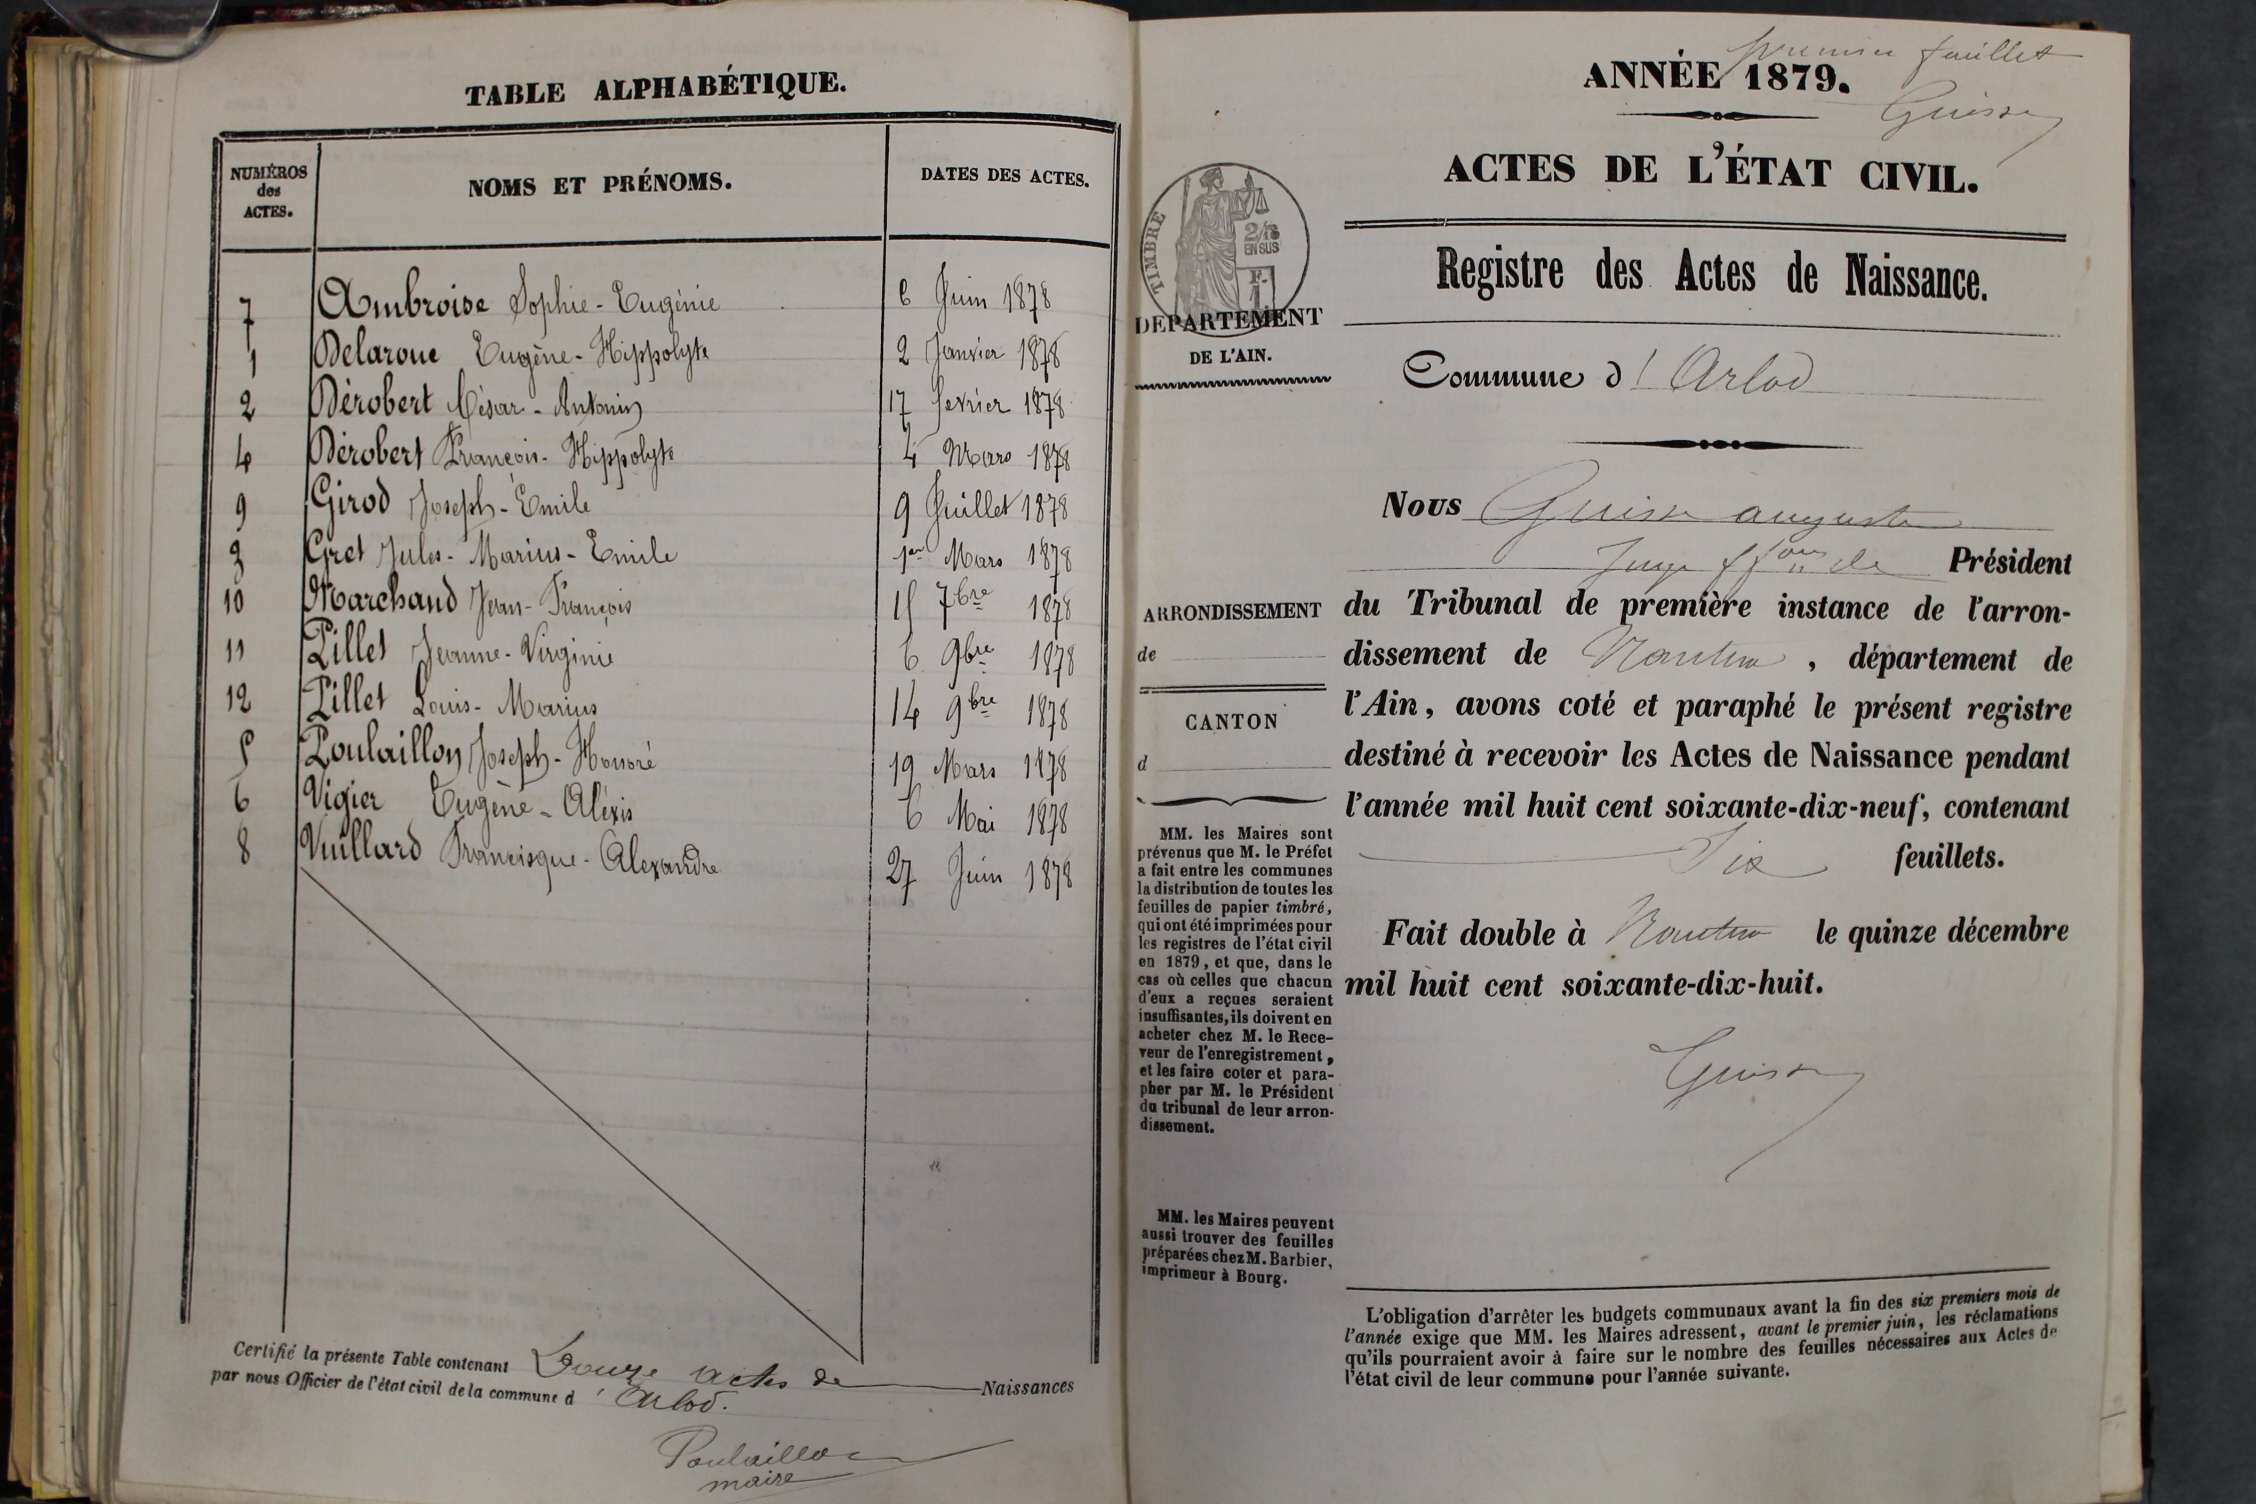 TABLE ALPHABÉTIQUE.
NUMÉROS des ACTES. NOMS ET PRÉNOMS. DATES DES ACTES.
7 Ambroise Sophie-Eugénie 6 Juin 1878
1 Delaroue Eugène-Hippolyte 2 Janvier 1878
2 Dérobert César-Antonin 17 fevrier 1878
4 Dérobert François-Hippolyte 4 Mars 1878
9 Girod Joseph-Emile 9 Juillet 1878
3 Gret Jules-Marius-Emile 1er Mars 1878
10 Marchand Jean-François 15 7bre 1878
11 Pillet Jeanne-Virginie 6 9bre 1878
12 Pillet Louis-Marius 14 9bre 1878
5 Poulaillon Joseph-Honoré 19 Mars 1878
6 Vigier Eugène-Aléxis 6 Mai 1878
8 Vuillard Francisque-Alexandre 27 Juin 1878
Certifié la présente Table contenant Douze actes de Naissances
par nous Officier de l'état civil de la commune d'Arlod.
Poulaillon
maire
premier feuillet
ANNÉE 1879.
ACTES DE L'ÉTAT CIVIL.
TIMBRE
2/10
EN SUS
F.
1
Registre des Actes de Naissance.
DÉPARTEMENT
DE L'AIN.
Commune d'Arlod
Nous auguste
Juge ffons de Président
ARRONDISSEMENT
de
CANTON
d
du Tribunal de première instance de l'arron-
dissement de Nantua, département de
l'Ain, avons coté et paraphé le présent registre
destiné à recevoir les Actes de Naissance pendant
l'année mil huit cent soixante-dix-neuf, contenant
Six feuillets.
Fait double à Nantua le quinze décembre
mil huit cent soixante-dix-huit.
MM. les Maires sont
prévenus que M. le Préfet
a fait entre les communes
la distribution de toutes les
feuilles de papier timbré,
qui ont été imprimées pour
les registres de l'état civil
en 1879, et que, dans le
cas où celles que chacun
d'eux a reçues seraient
insuffisantes, ils doivent en
acheter chez M. le Rece-
veur de l'enregistrement,
et les faire coter et para-
pher par M. le Président
du tribunal de leur arron-
dissement.
MM. les Maires peuvent
aussi trouver des feuilles
préparées chez M. Barbier,
imprimeur à Bourg.
L'obligation d'arrêter les budgets communaux avant la fin des six premiers mois de
l'année exige que MM. les Maires adressent, avant le premier juin, les réclamations
qu'ils pourraient avoir à faire sur le nombre des feuilles nécessaires aux Actes de
l'état civil de leur commune pour l'année suivante.